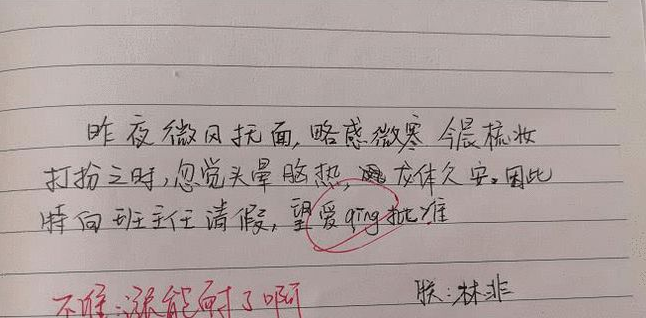 昨夜微风抚面,略感微寒 今晨梳妆
打扮之时,忽觉头晕脑热, 龙体欠安。因此
特向班主任请假,望爱qing批准
朕:林非
不准:涨能耐了啊